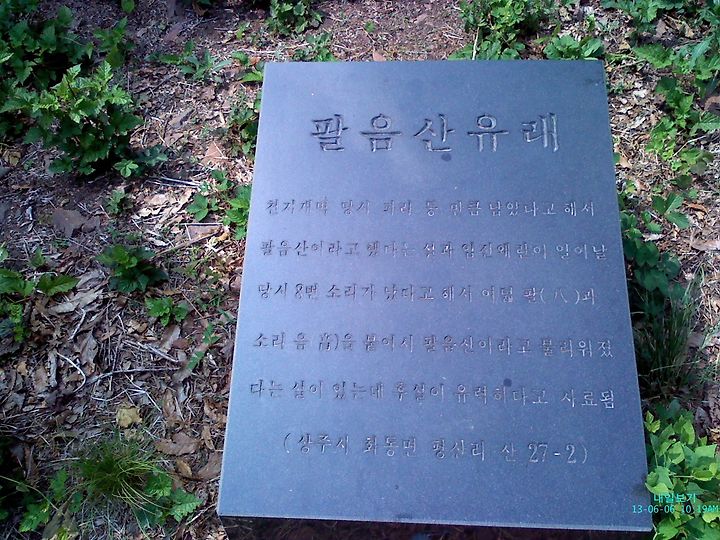 팔음산유래
천지개벽 당시 파리 등 만큼 남았다고 해서
팔음산이라고 했다는 설과 임진왜란이 일어날
당시 8번 소리가 났다고 해서 여덟 팔(八)과
소리 음(音)을 붙여서 팔음산이라고 불리워졌
다는 설이 있는데 후설이 유력하다고 사료됨
(상주시 화동면 평산리 산 27-2)
내일보기
13-06-06 10:19AM